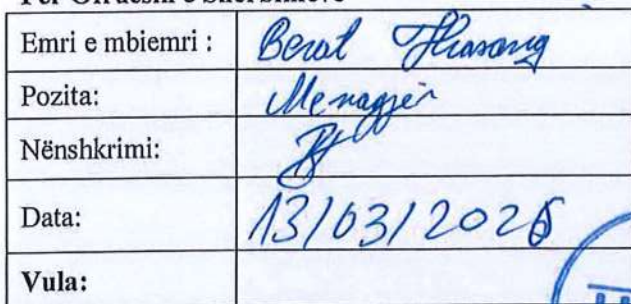 Për Ofruesin e Shërbimeve
Emri e mbiemri : Berat Thasang
Pozita: Menagjer
Nënshkrimi:
Data: 13/03/2025
Vula: